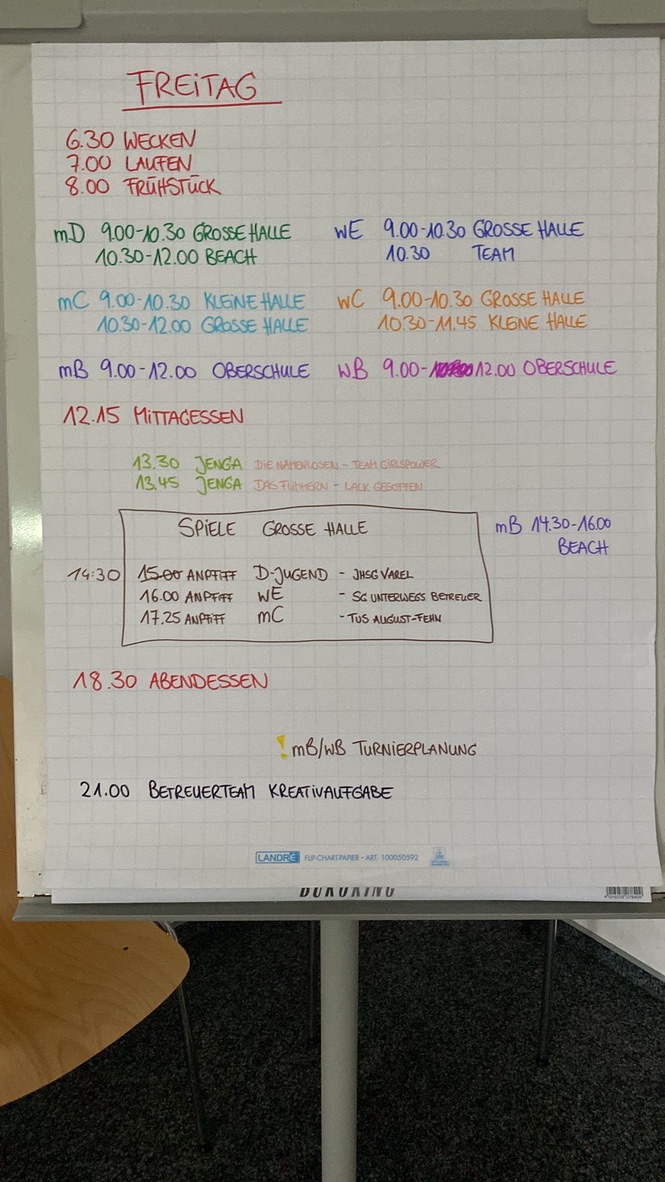 FREITAG
6.30 WECKEN
7.00 LAUFEN
8.00 FRÜHSTÜCK
mD 9.00-10.30 GROSSE HALLE
10.30-12.00 BEACH
wE 9.00-10.30 GROSSE HALLE
10.30 TEAM
mC 9.00-10.30 KLEINE HALLE
10.30-12.00 GROSSE HALLE
wC 9.00-10.30 GROSSE HALLE
10.30-11.45 KLEINE HALLE
mB 9.00-12.00 OBERSCHULE
wB 9.00-12.00 OBERSCHULE
12.15 MITTAGESSEN
13.30 JENGA DIE NAMENLOSEN - TEAM GIRLSPOWER
13.45 JENGA DAS - LACK GESOFFEN
SPIELE GROSSE HALLE
14:30 15.00 ANPFIFF D-JUGEND - JHSG VAREL
16.00 ANPFIFF wE - SG UNTERWEGS BETREUER
17.25 ANPFIFF mC - TUS AUGUST-FEHN
mB 14.30-16.00
BEACH
18.30 ABENDESSEN
! mB/wB TURNIERPLANUNG
21.00 BETREUERTEAM KREATIVAUFGABE
LANDRÉ FLIP-CHART-PAPIER • ART. 100050592